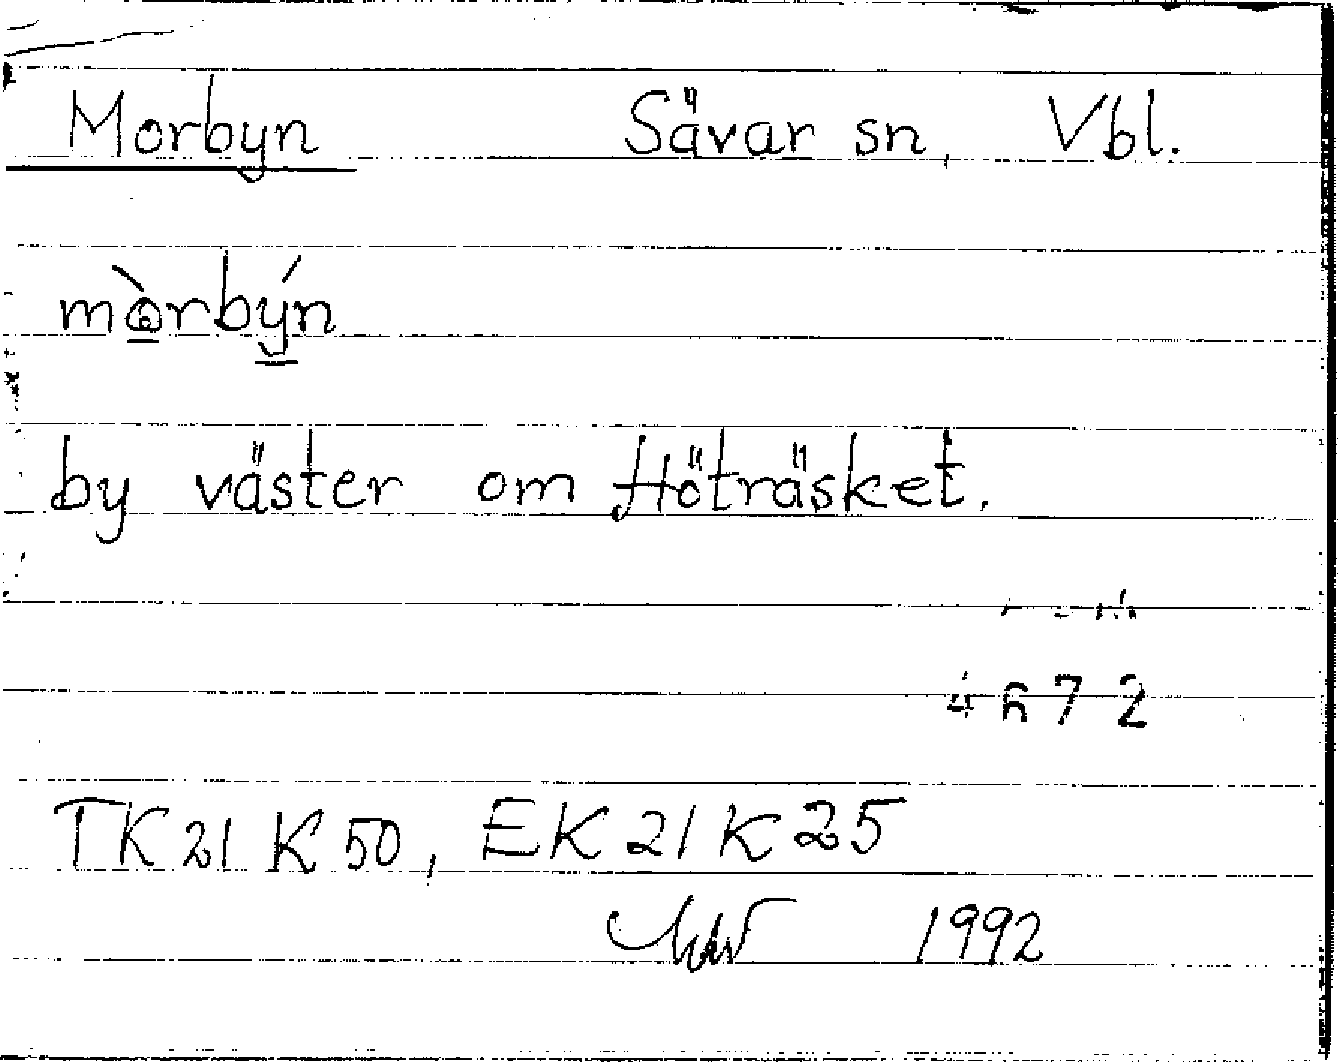 Morbyn Sävar sn, Vbl.
mòrbýn
by väster om Höträsket.
4672
TK21K50, EK21K25
1992